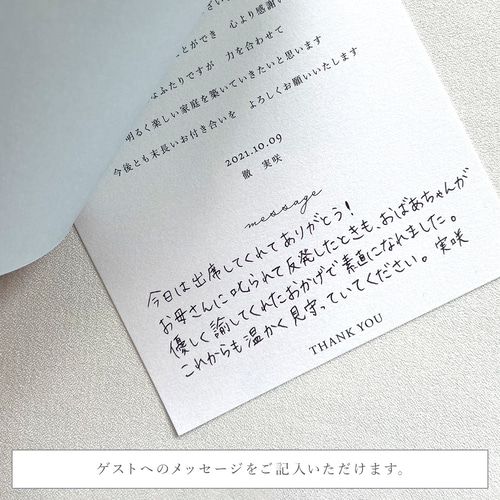 ことができ 心より感謝い
なふたりですが 力を合わせて
明るく楽しい家庭を築いていきたいと思います
今後とも末長いお付き合いを よろしくお願いいたします
2021.10.09
徹 実咲
message
今日は出席してくれてありがとう!
お母さんに叱られて反発したときも、おばあちゃんが
優しく諭してくれたおかげで素直になれました。
これからも温かく見守っていてください。 実咲
THANK YOU
ゲストへのメッセージをご記入いただけます。